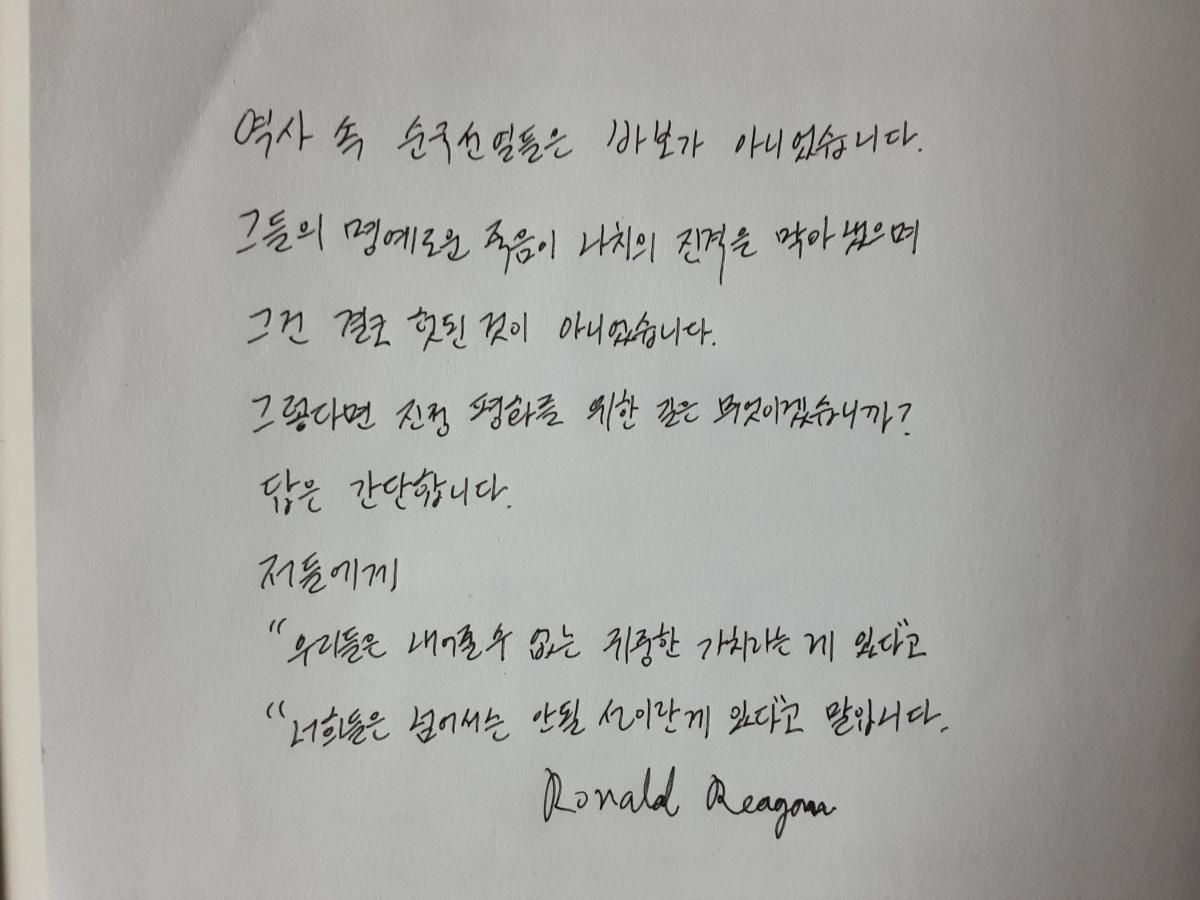 역사 속 순국선열들은 바보가 아니었습니다.
그들의 명예로운 죽음이 나치의 진격을 막아 냈으며
그건 결코 헛된 것이 아니었습니다.
그렇다면 진정 평화를 위한 길은 무엇이겠습니까?
답은 간단합니다.
저들에게
"우리들은 내어줄 수 없는 귀중한 가치라는 게 있다"고
"너희들은 넘어서는 안될 선이란게 있다"고 말입니다.
Ronald Reagan